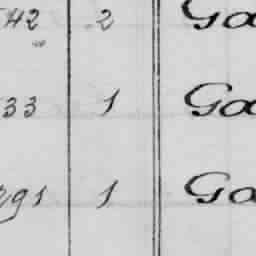 542 2 Ga
33 1 Ga
291 1 Ga